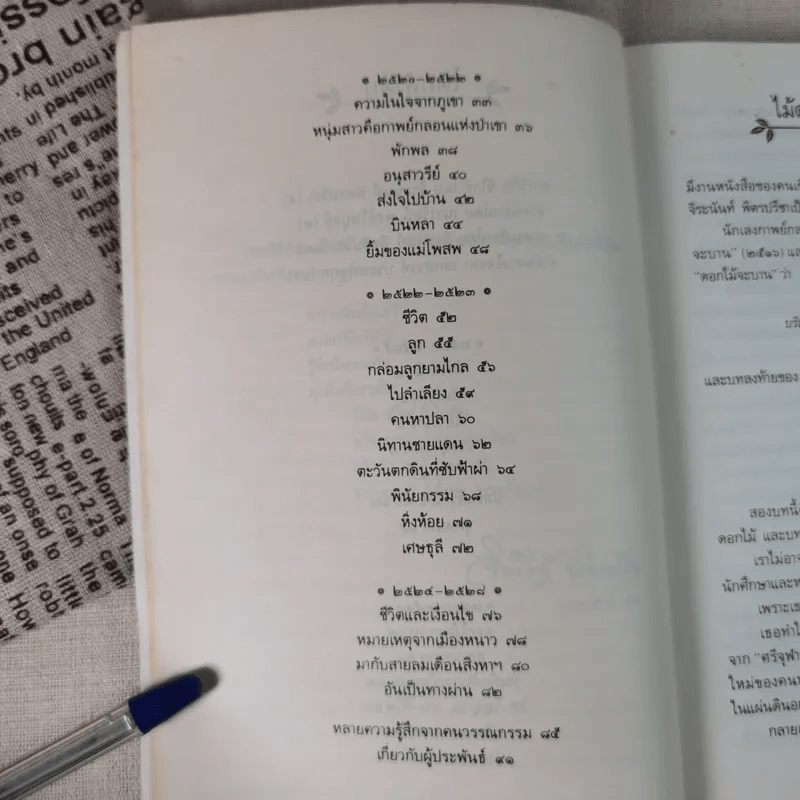 • ๒๕๒๐-๒๕๒๒ •
ความในใจจากภูเขา ๓๓
หนุ่มสาวคือกาพย์กลอนแห่งป่าเขา ๓๖
พักพล ๓๘
อนุสาวรีย์ ๔๐
ส่งใจไปบ้าน ๔๒
บินหลา ๔๔
ยิ้มของแม่โพสพ ๔๘
• ๒๕๒๒-๒๕๒๓ •
ชีวิต ๕๒
ลูก ๕๕
กล่อมลูกยามไกล ๕๖
ไปลำเลียง ๕๙
คนหาปลา ๖๐
นิทานชายแดน ๖๒
ตะวันตกดินที่ซับฟ้าผ่า ๖๔
พินัยกรรม ๖๘
หิ่งห้อย ๗๑
เศษธุลี ๗๒
• ๒๕๒๔-๒๕๒๘ •
ชีวิตและเงื่อนไข ๗๖
หมายเหตุจากเมืองหนาว ๗๘
มากับสายลมเดือนสิงหาฯ ๘๐
อันเป็นทางผ่าน ๘๒
หลายความรู้สึกจากคนวรรณกรรม ๘๕
เกี่ยวกับผู้ประพันธ์ ๙๑
มีงานหนังสือของคน
จิระนันท์ พิตรปรีชา
นักเลงกาพย์
จะบาน" (๒๕๑๖)
"ดอกไม้จะบาน" ว่า
และบทลงท้ายของ
สองบทนี้
ดอกไม้ และบท
เราไม่อาจ
นักศึกษาและ
เพราะ
เธอทำ
จาก "ศรีจุฬา
ใหม่ของคน
ในแผ่นดิน
กลาย
ain bro
month by
published in
The Life
and
the United
England
chouils
ma the
e of Norma
ion new
phy of
e-part.2.25
supposed to
of an onse
little
the